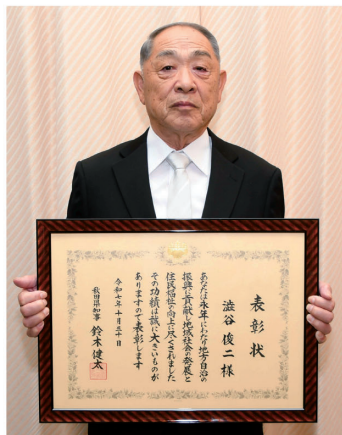 表彰状
澁谷俊二様
あなたは永年にわたり地方自治の
振興に貢献し地域社会の発展と
住民福祉の向上に尽くされました
その功績は誠に大きいものが
ありますので表彰します
令和七年十月三十日
秋田県知事 鈴木健太